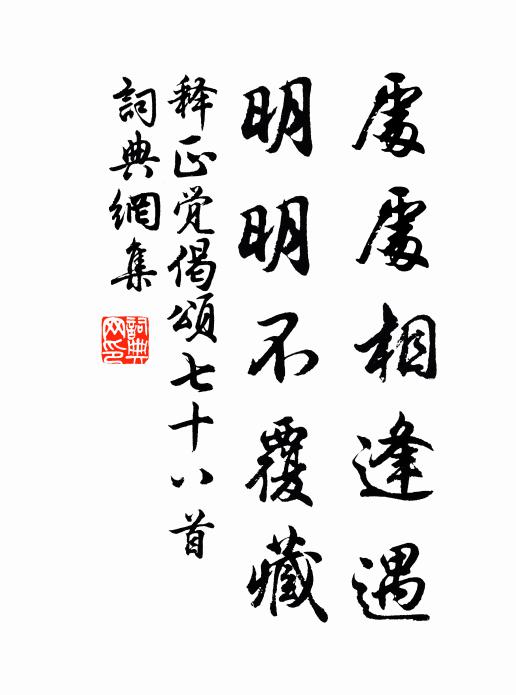 處處相逢遇
明明不覆藏
释正觉偈頌七十八首
詞典網集
詞典
网印